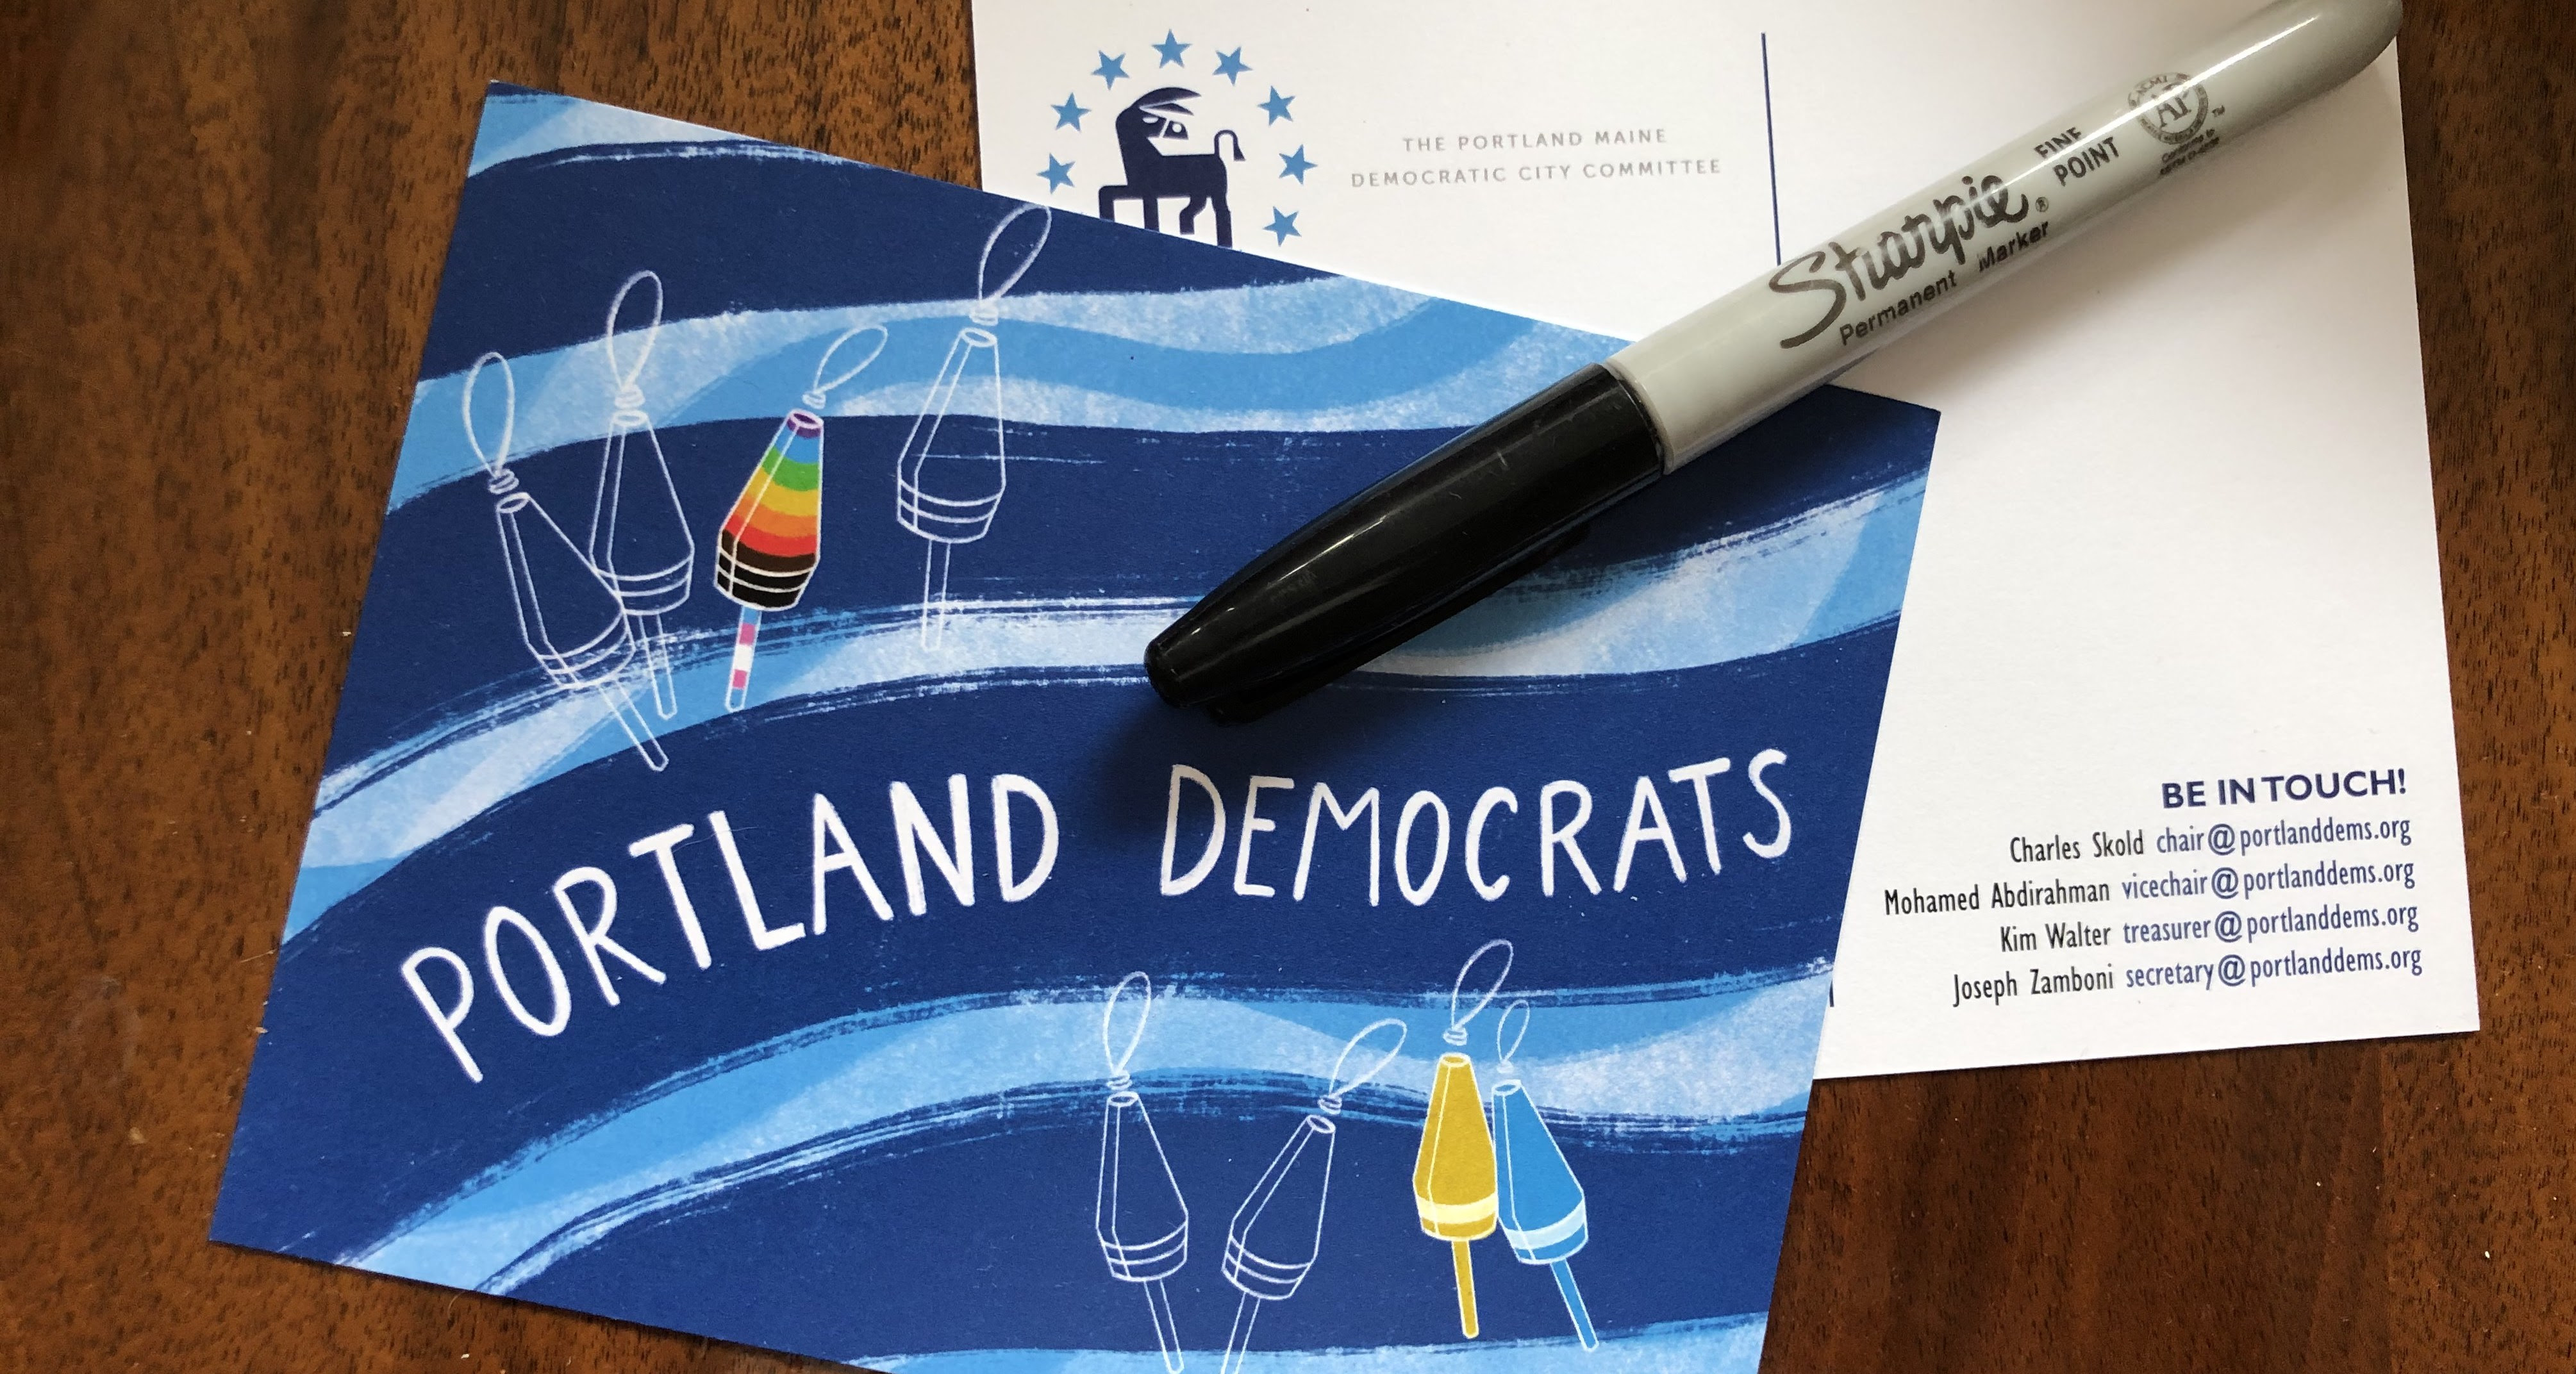 THE PORTLAND MAINE
DEMOCRATIC CITY COMMITTEE
Sharpie®
Permanent Marker
FINE
POINT
AP
TM
PORTLAND DEMOCRATS
BE IN TOUCH!
Charles Skold chair@portlanddems.org
Mohamed Abdirahman vicechair@portlanddems.org
Kim Walter treasurer@portlanddems.org
Joseph Zamboni secretary@portlanddems.org